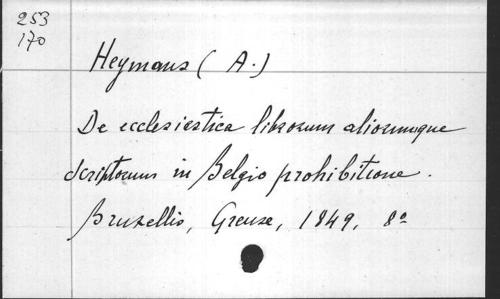 253
170
Heymans (A.)
De ecclesiastica librorum aliorumque
scriptorum in Belgio prohibitione.
Bruxellis, Greuse, 1849, 8º